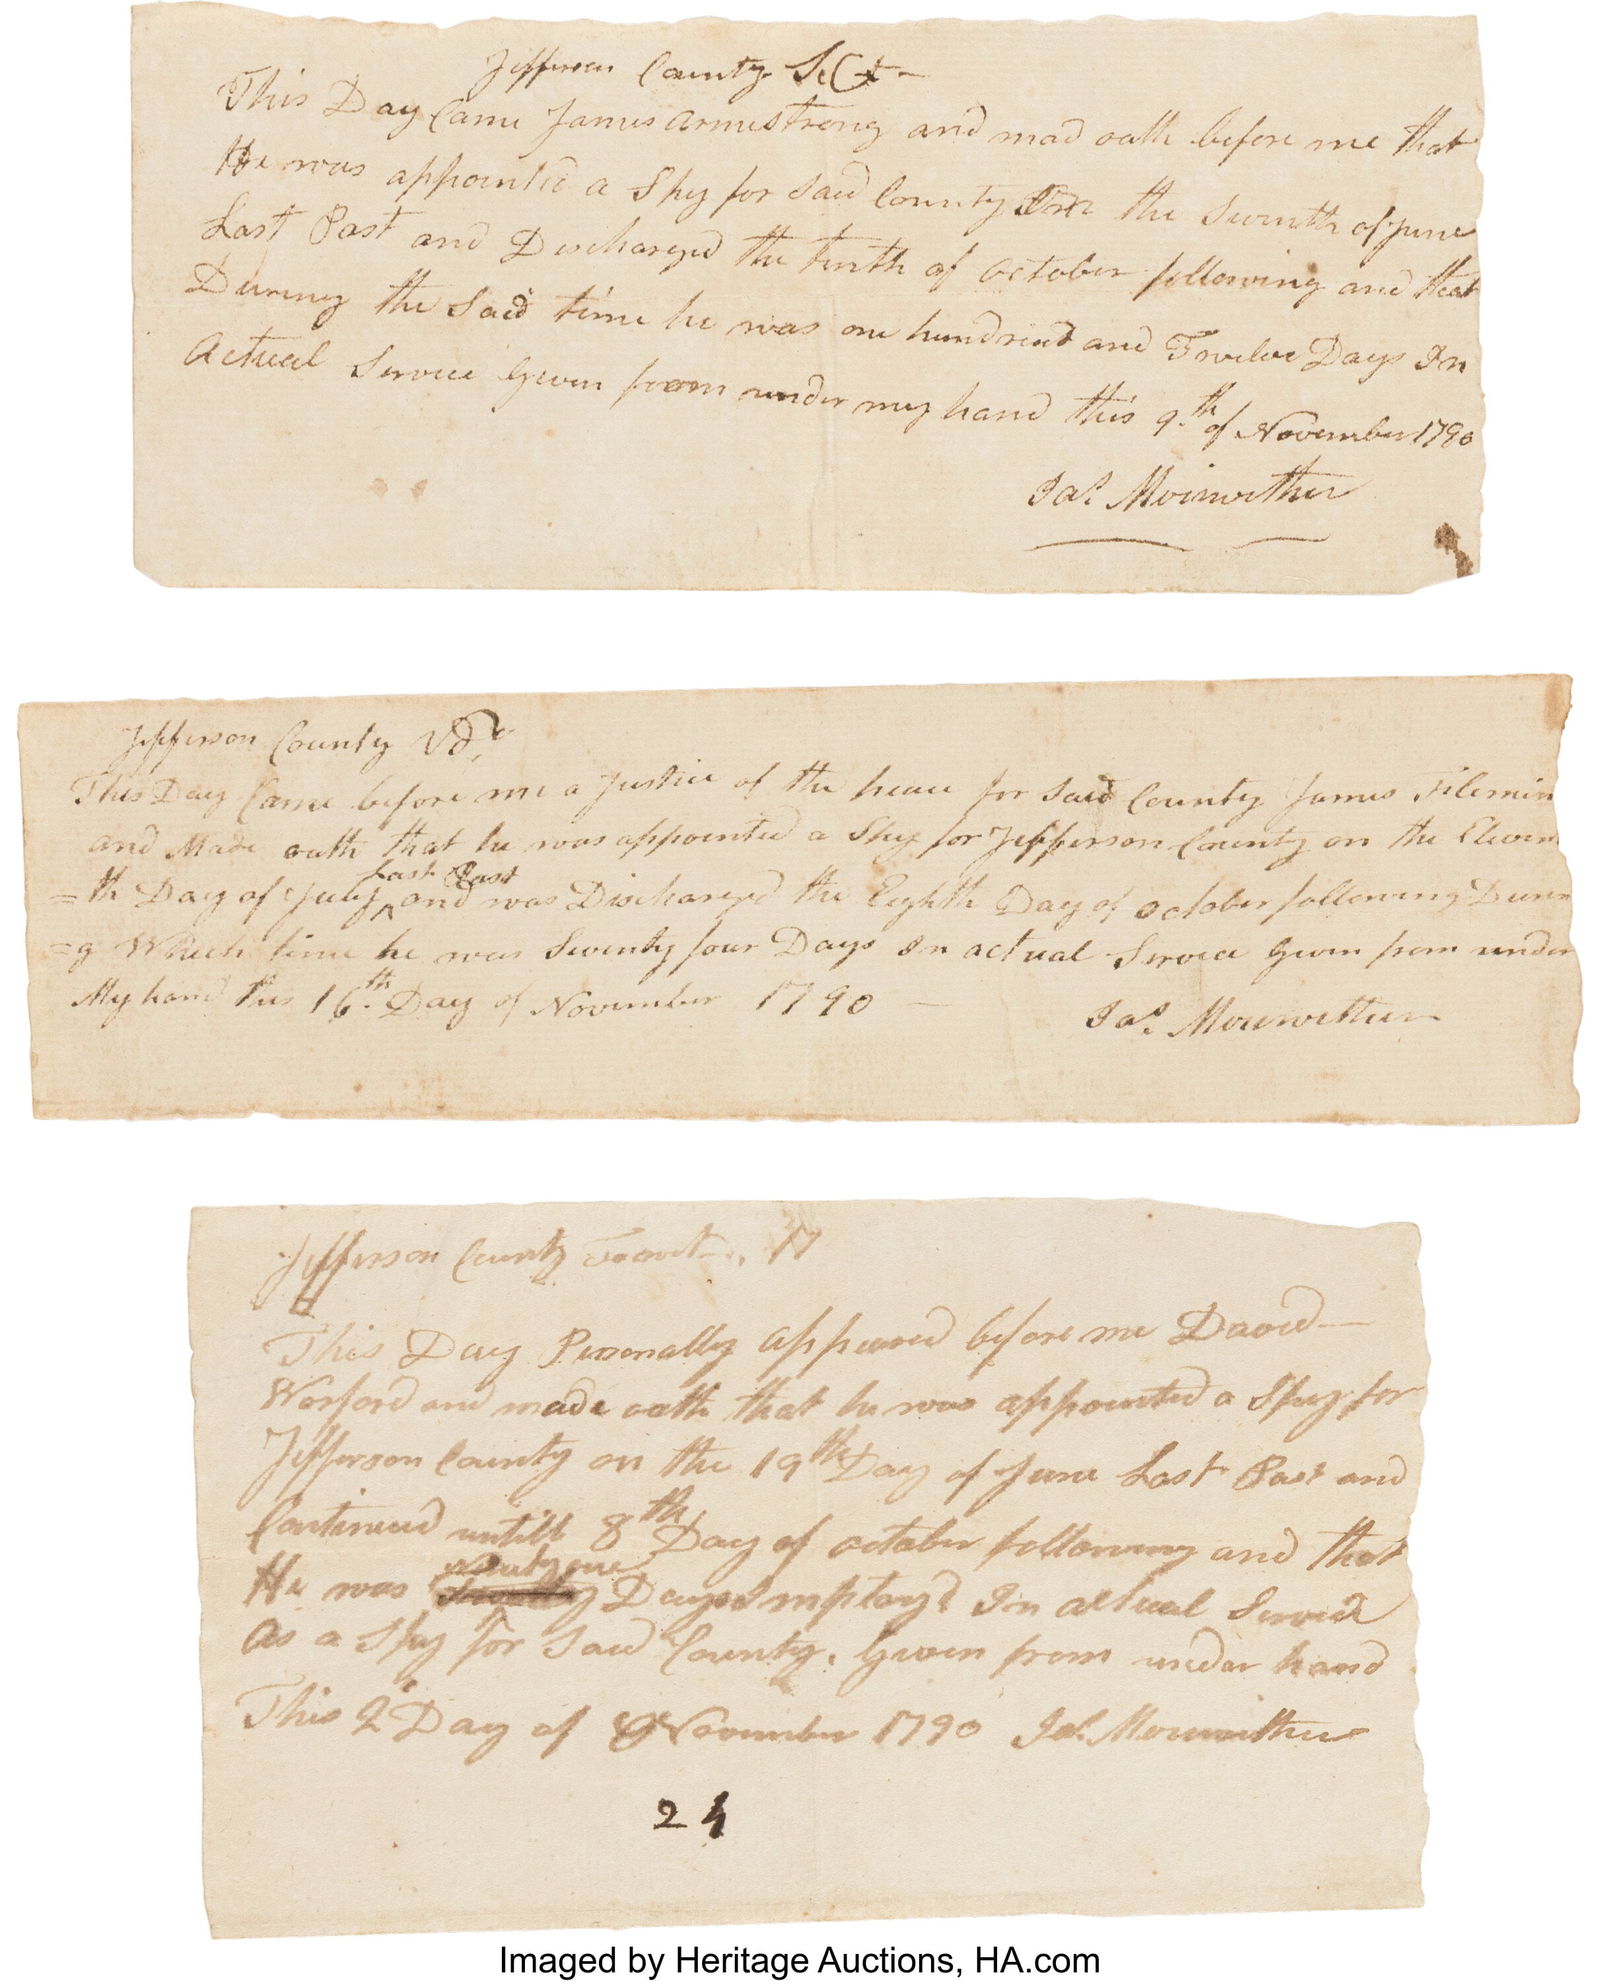 Jefferson County Sct
This Day Came James Armstrong and mad oath before me that
He was appointed a Spy for Said County the Seventh of June
Last Past and Discharged the tenth of October following and that
During the Said time he was one hundred and Twelve Days In
Actual Service Given from under my hand this 9.th of November 1790
Jas. Meriwether
Jefferson County
This Day Came before me a Justice of the peace for Said County James
and Made oath that he was appointed a Spy for Jefferson County on the Eleven
=th Day of July Last Past and was Discharged the Eighth Day of October following Durin
=g Which time he was Seventy four Days In actual Service Given from under
My hand this 16.th Day of November 1790
Jas. Meriwether
Jefferson County
This Day Personally Appeared before me David
Worford and made oath that he was appointed a Spy for
Jefferson County on the 19th Day of June Last Past and
Continued untill 8th Day of october following and that
He was Days Imployd In actual Service
As a Spy for Said County. Given from under hand
This 2d Day of November 1790 Jas. Meriwether
24
Imaged by Heritage Auctions, HA.com